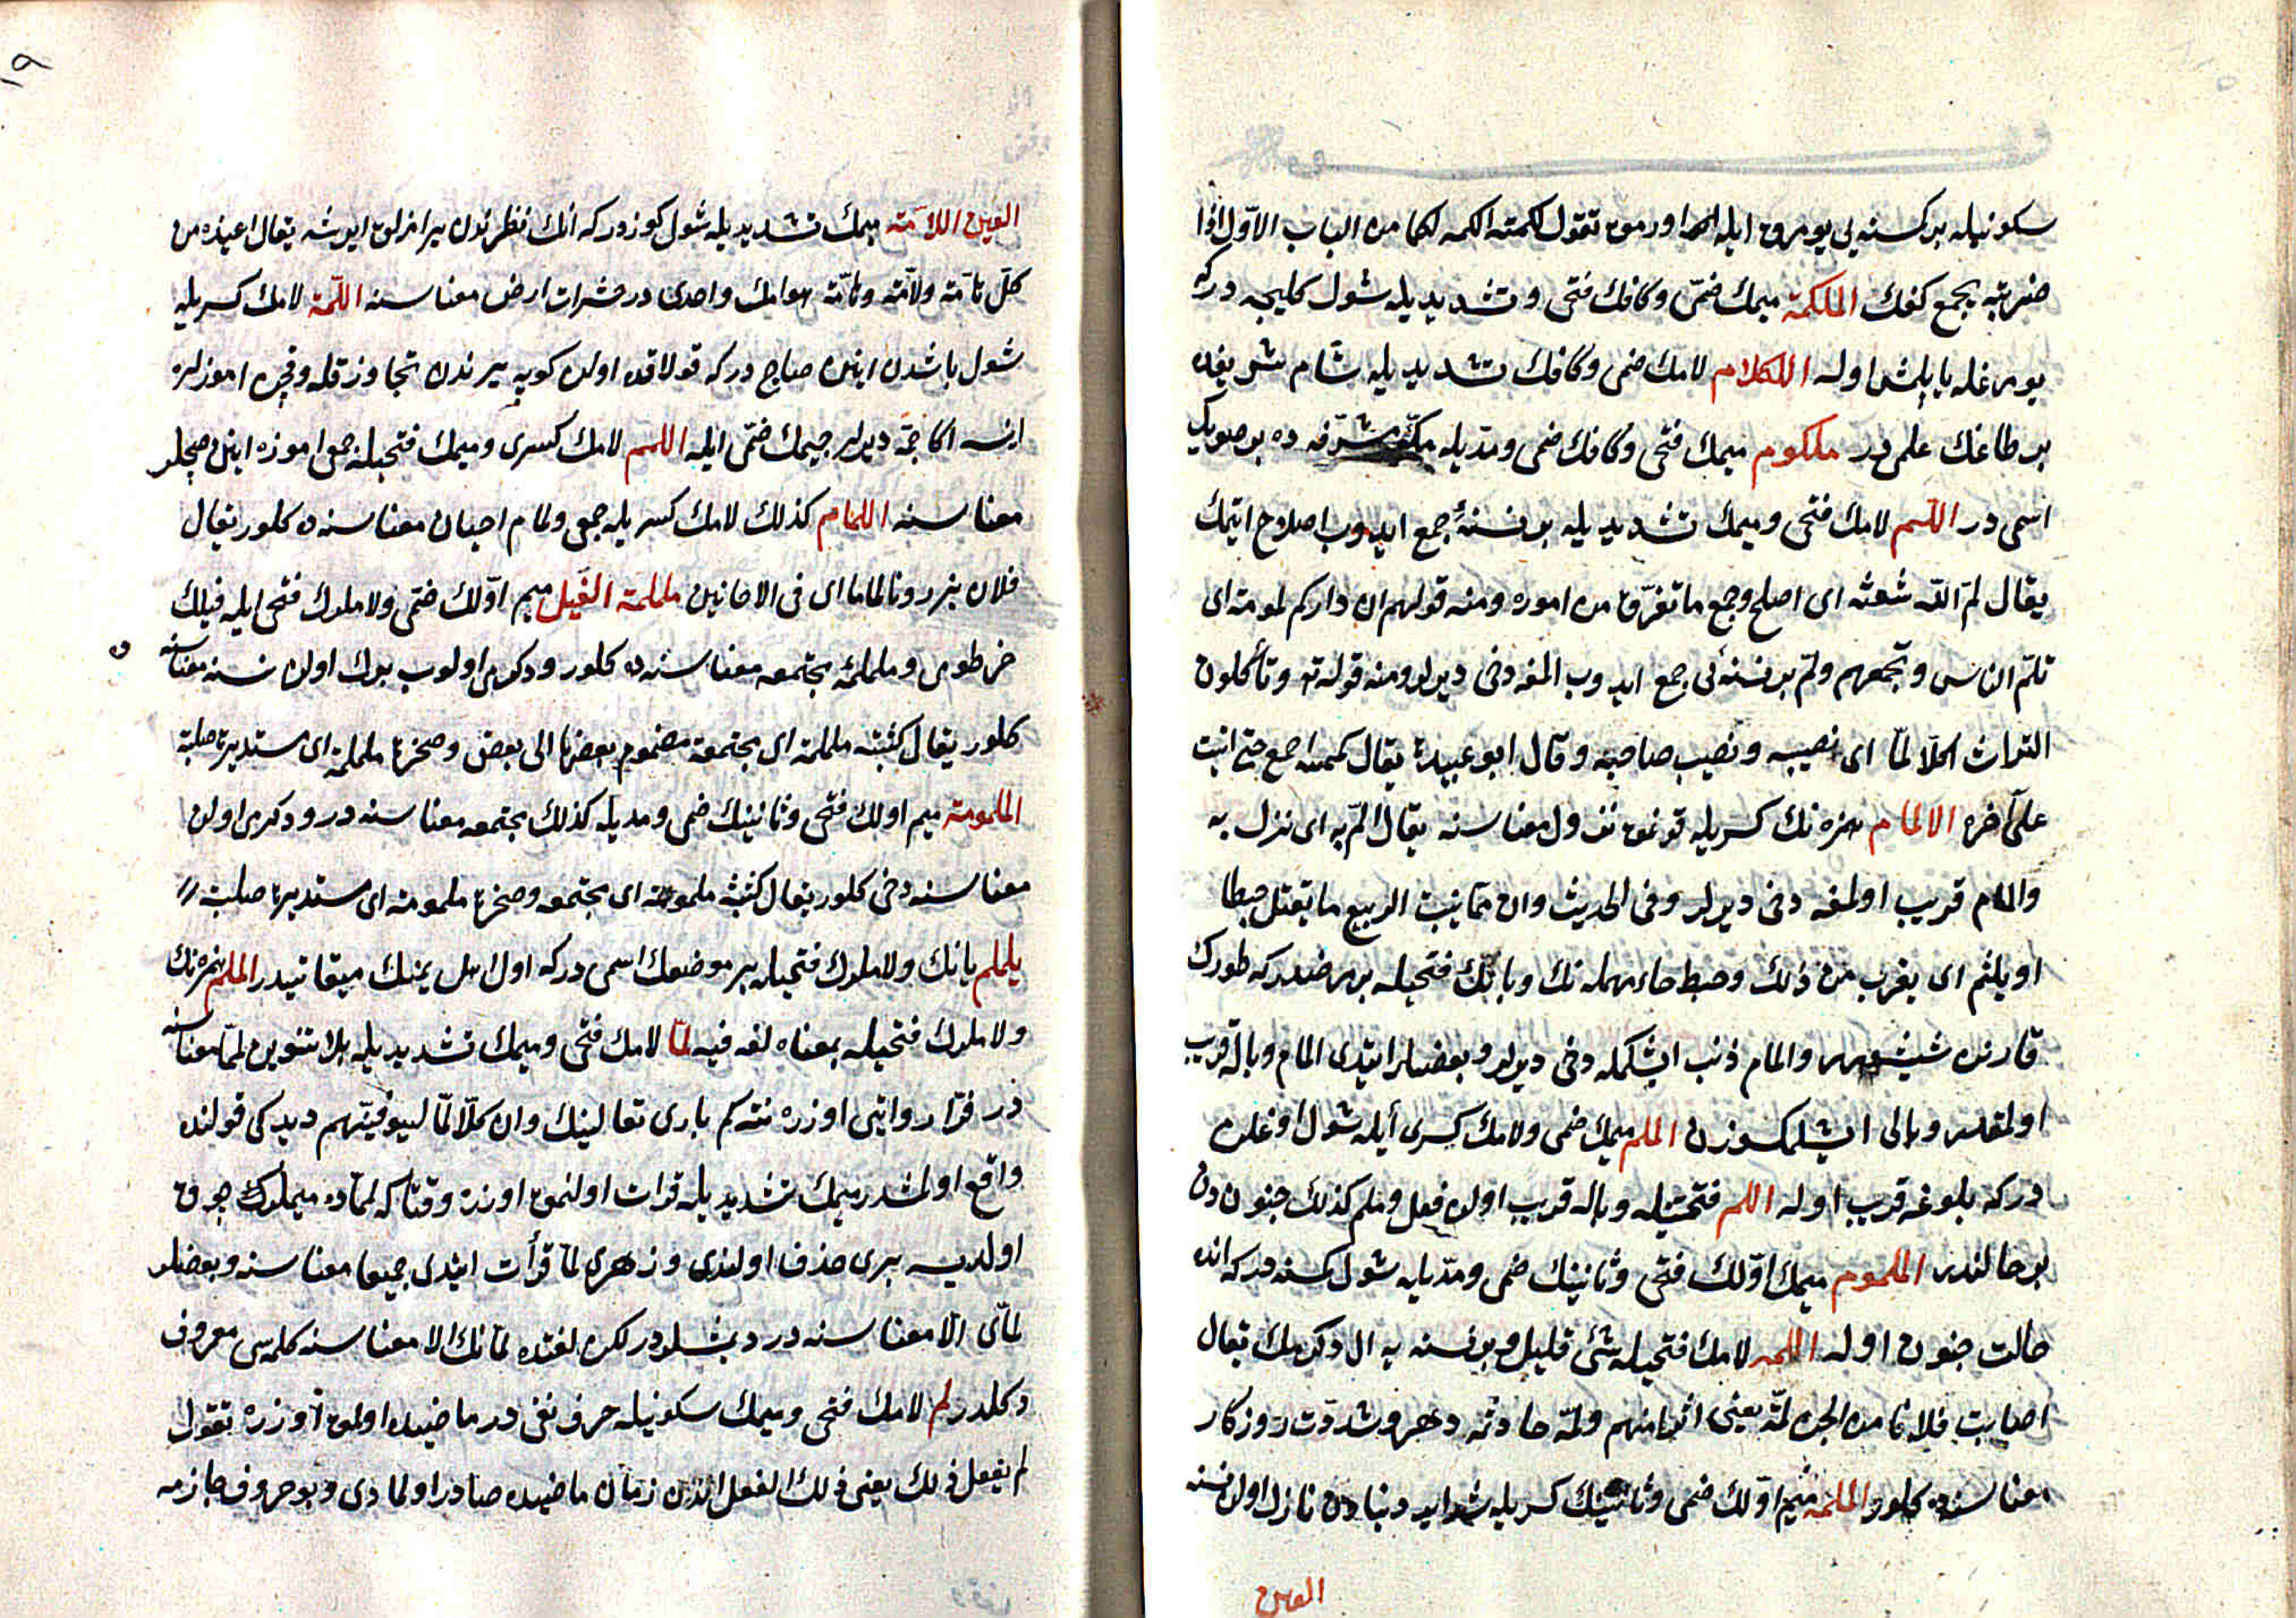 سكونيله بر كسنه يى يومروق ايله اورمق تقول لكمته الكمه لكما من الباب الاوّل اذا
ضربته بجمع كفك الملكمة ميمك ضمّى وكافك فتحى وتشديديله شول كليجه دركه
يومرغله يايلمش اوله اللكلام لامك ضمى وكافك تشديديله شام شريفده
بر طاغك علمى در ملكوم ميمك فتحى وكافك ضمى ومدّيله مكّه مشرّفه ده بر صويك
اسمى در اللّم لامك فتحى وميمك تشديديله بر نسنهٔ جمع ايدوب اصلاح ايتمك
يقال لمّ اللّه شعثه اى اصلح وجمع ما تفرّق من اموره ومنه قولهم ان داركم لمومة اى
تلمّ الناس وتجمعهم ولمّ بر نسنه ئى جمع ايدوب المغه دخى ديرلر ومنه قوله تع وتأكلون
التراث اكلا لمّا اى نصيبه ونصيب صاحبه وقال ابو عبيدة يقال لممته اجمع حتى اتيت
على آخره الالمام همزه نك كسريله قونمق نزول معناسنه يقال المّ به اى نزل به
والمام قريب اولمغه دخى ديرلر وفى الحديث وان ممّا ينبت الربيع ما يقتل حبطا
او يلمّ اى يقرب من ذلك وحبط حاء مهمله نك وبانك فتحيله بر مرضدر كه طورك
قارنى شيشر والمام ذنب ايشلمكه دخى ديرلر وبعضلر ايتدى المام وباله قريب
اولمقدر وبالى ايشلمكسزن الملم ميمك ضمى ولامك كسرى ايله شول اوغلان
دركه بلوغه قريب اوله اللمم فتحتيله وباله قريب اولان فعل ولمم كذلك جنون دن
بر حالتدر الملموم ميمك اوّلك فتحى وثانينك ضمى ومدّيله شول كمسنه دركه انده
حالت جنون اوله اللمه لامك فتحيله شئ قليل وبر نسنه يه ال دكرمك يقال
اصابت فلانا من الجن لمّة يعنى اثما منهم ولمّه حادثه دهر وشدّت روزكار
معناسنه كلور الملمه ميم اوّلك ضمى وثانينك كسريله شدايد دنيادن نازل اولان نسنه
العين
١٩
العين اللّامّة ميمك تشديديله شول كوزدركه انك نظرندن يرامزلق ايريشه يقال اعيذه من
كلّ تامّة ولامّة وهامّه هوامك واحدى در حشرات ارض معناسنه اللّمة لامك كسريله
شول باشدن اينن صاج دركه قولاقده اولان كوپه يرندن تجاوز قله وقچن اموزلره
اينسه اكا جمّه ديرلر جيمك ضمّى ايله اللمم لامك كسرى وميمك فتحيله جمعى اموزه اينن صچلر
معناسنه اللمام كذلك لامك كسريله جمعى ولمام احيان معناسنه ده كلور يقال
فلان يزورنا لماما اى فى الاحايين ململمة الفيل ميم اوّلك ضمّى ولاملرك فتحى ايله فيلك
خرطومى وململمه مجتمعه معناسنه ده كلور ودكرمى اولوب بيوك اولان نسنه معناسنه ده
كلور يقال كتيبة ململمة اى مجتمعة مضموم بعضها الى بعض وصخرة ململمة اى مستديرة صلبة
الملمومة ميم اولك فتحى وثانينك ضمى ومديله كذلك مجتمعه معناسنه در ودكرمى اولان
معناسنه دخى كلور يقال كتيبة ملمومة اى مجتمعه وصخرة ملمومة اى مستديرة صلبة
يلملم يانك ولاملرك فتحيله بر موضعك اسمى دركه اول اهل يمنك ميقاتيدر الملم همزه نك
ولاملرك فتحيله بمعناه لغه فيه لمّا لامك فتحى وميمك تشديديله بلا تنوين لمّا معناسنه
در فرّا روايتى اوزره نته كم بارى تعالينك وان كلّا لمّا ليوفينّهم ديدكى قولنده
واقع اولمشدر ميمك تشديديله قرات اولنمق اوزره وقتاكه لمّاده ميملرك چوق
اولديسه برى حذف اولندى وزهرى لمّا قرأت ايتدى جميعا معناسنه وبعضلر
لمّاى الّا معناسنه در ديمشلردر لكن لغتده لمّانك الا معناسنه كلمه سى معروف
دكلدر لم لامك فتحى وميمك سكونيله حرف نفى در ماضيده اولمق اوزره تقول
لم يفعل ذلك يعنى ذلك الفعل اندن زمان ماضيده صادر اولمادى وبو حروف جازمه